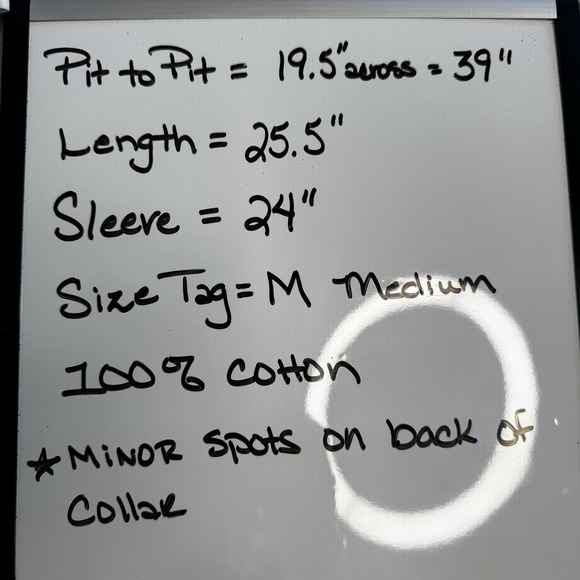 Pit to Pit = 19.5" across = 39"
Length = 25.5"
Sleeve = 24"
Size Tag = M Medium
100% Cotton
* MINOR spots on back of
Collar